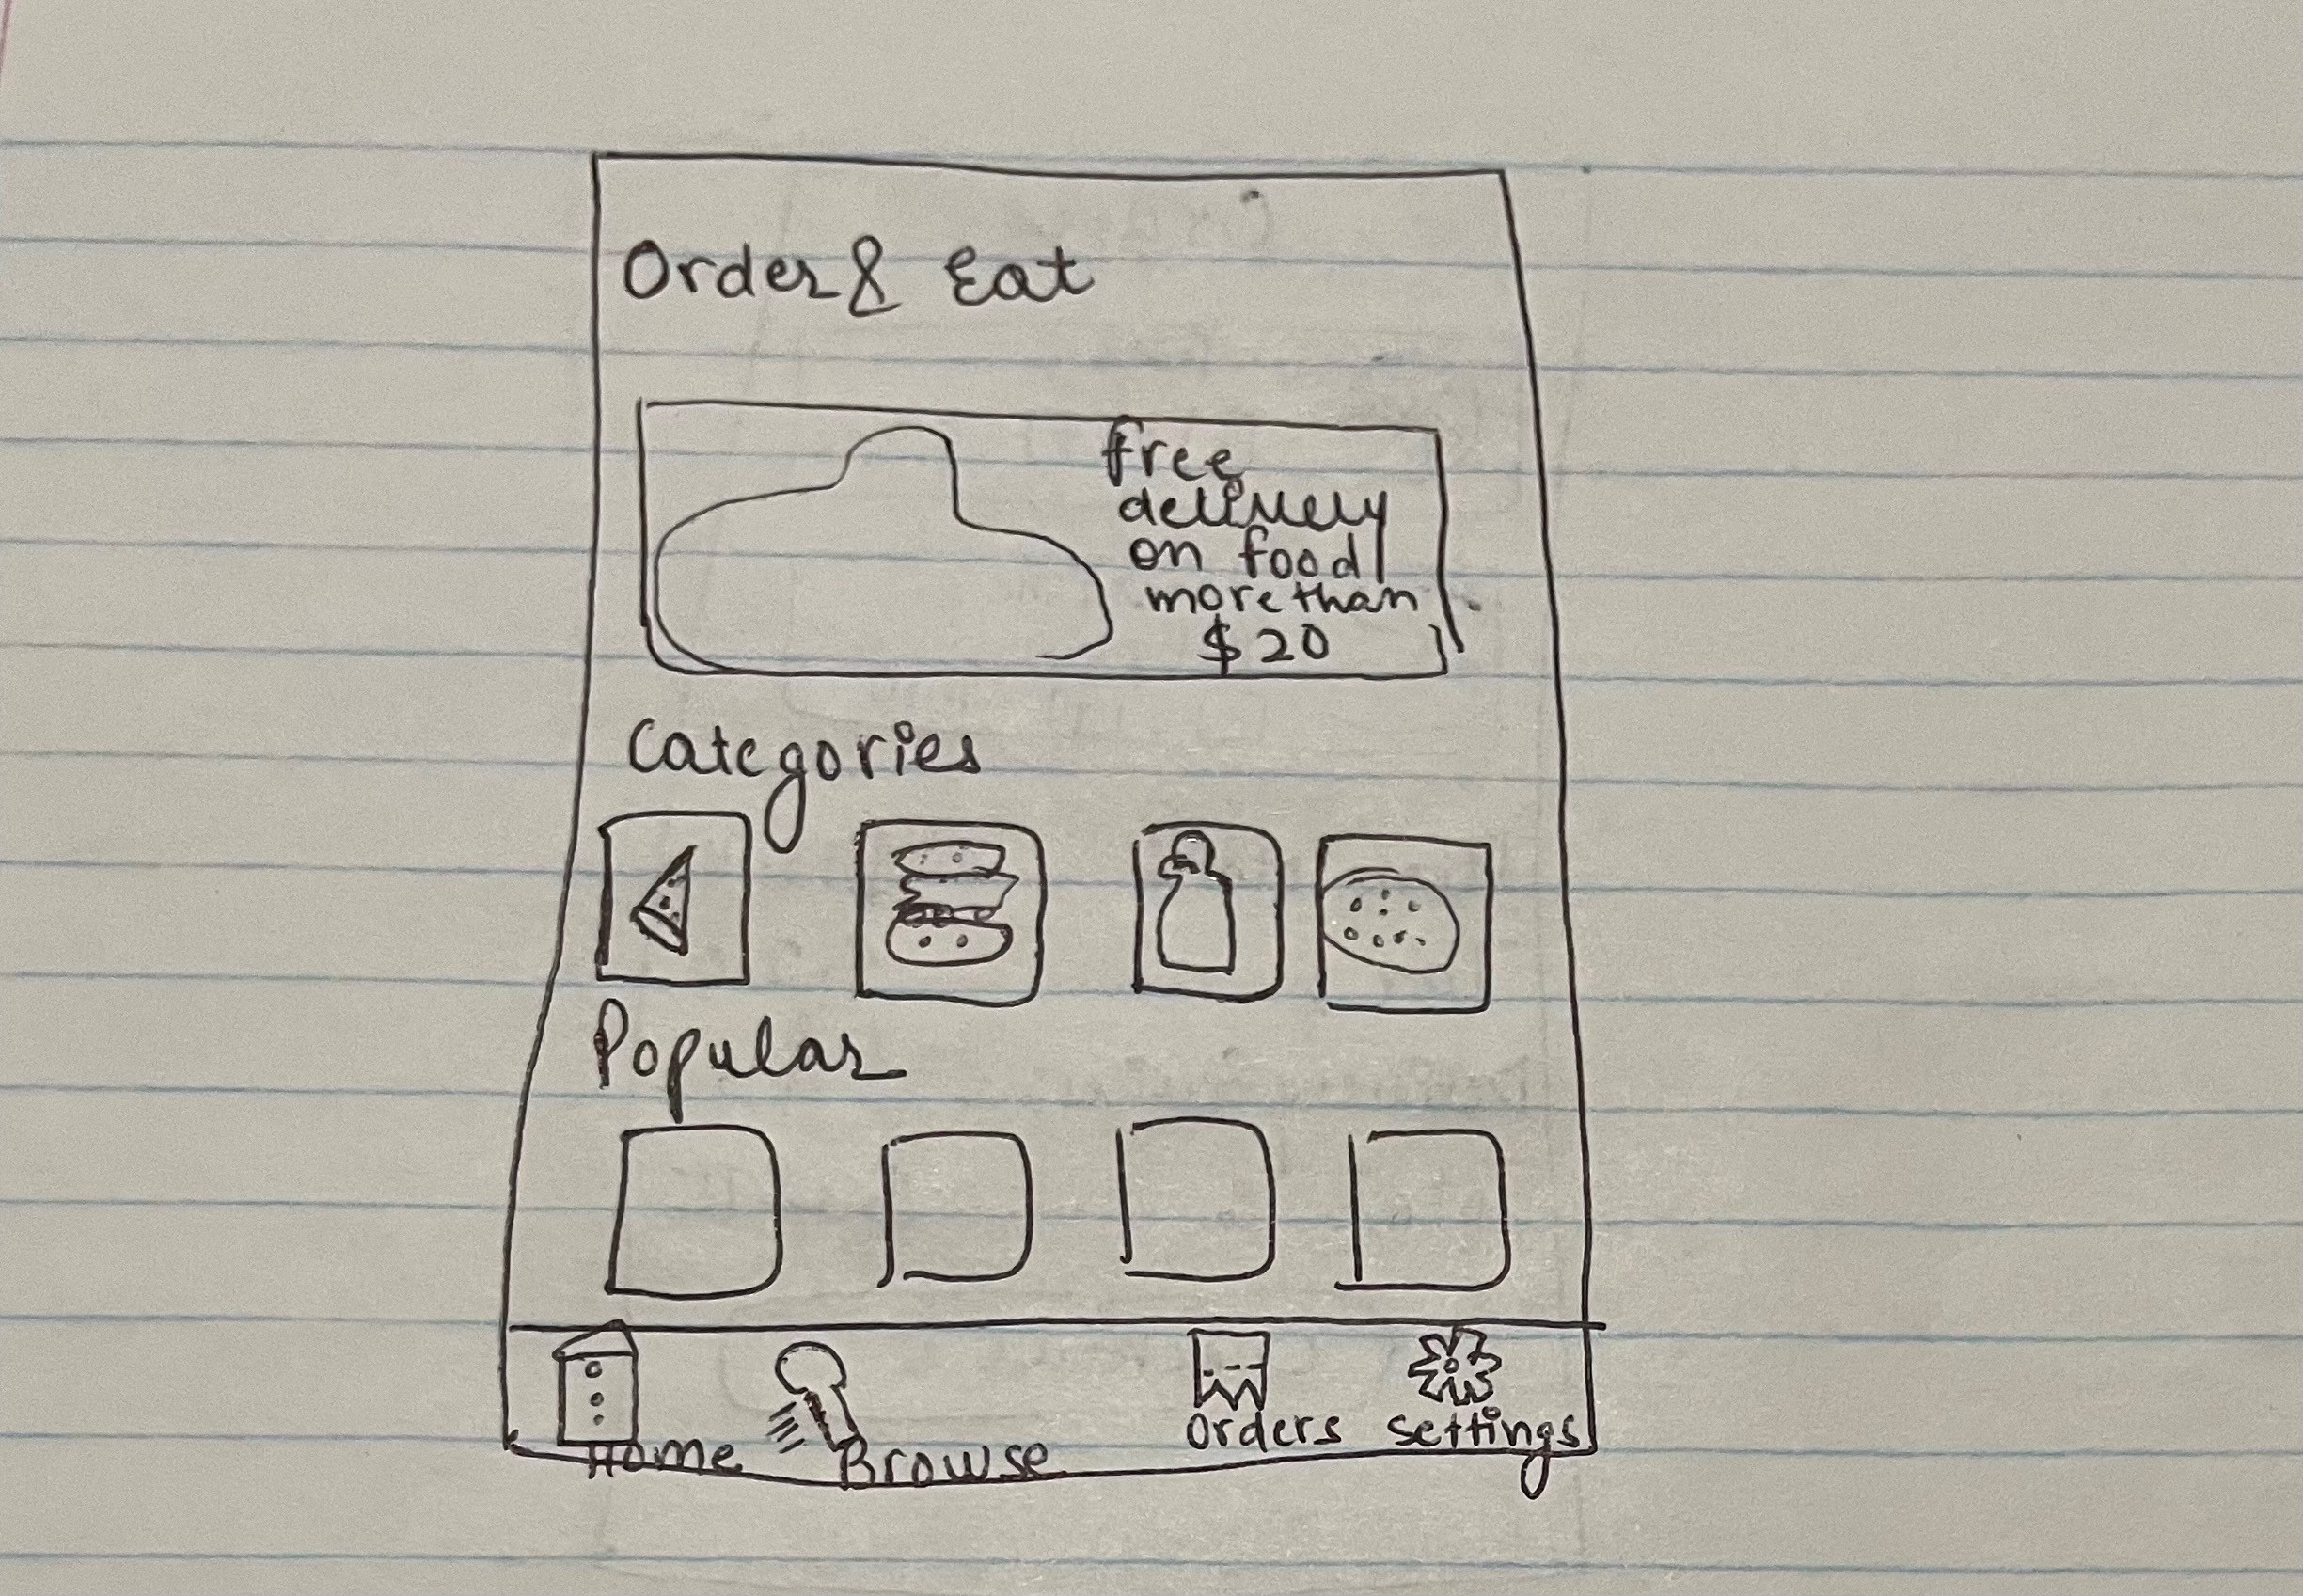 Order & Eat
free
delivery
on food
more than
$20
Categories
Popular
Home
Browse
Orders
settings